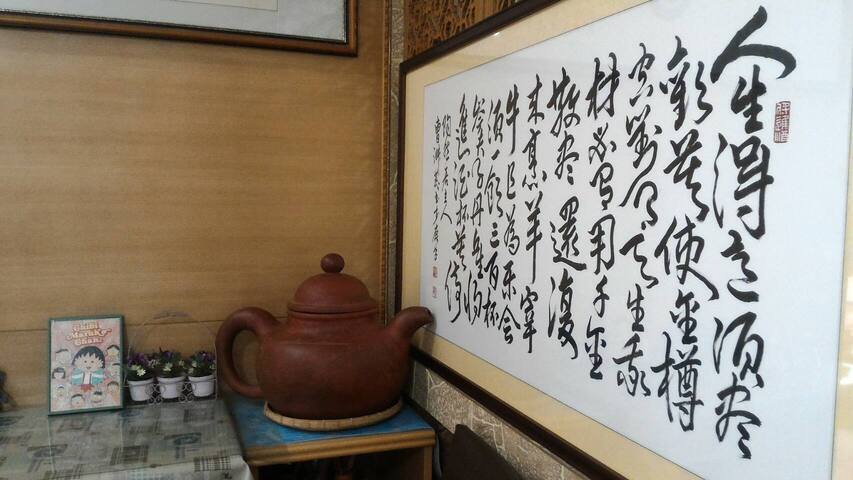 人生得意須盡
歡莫使金樽
空對月天生我
材必有用千金
散盡還復
來烹羊宰
牛且為樂會
須一飲三百杯
岑夫子丹丘生將
進酒杯莫停
Chibi
Maruko
Chan